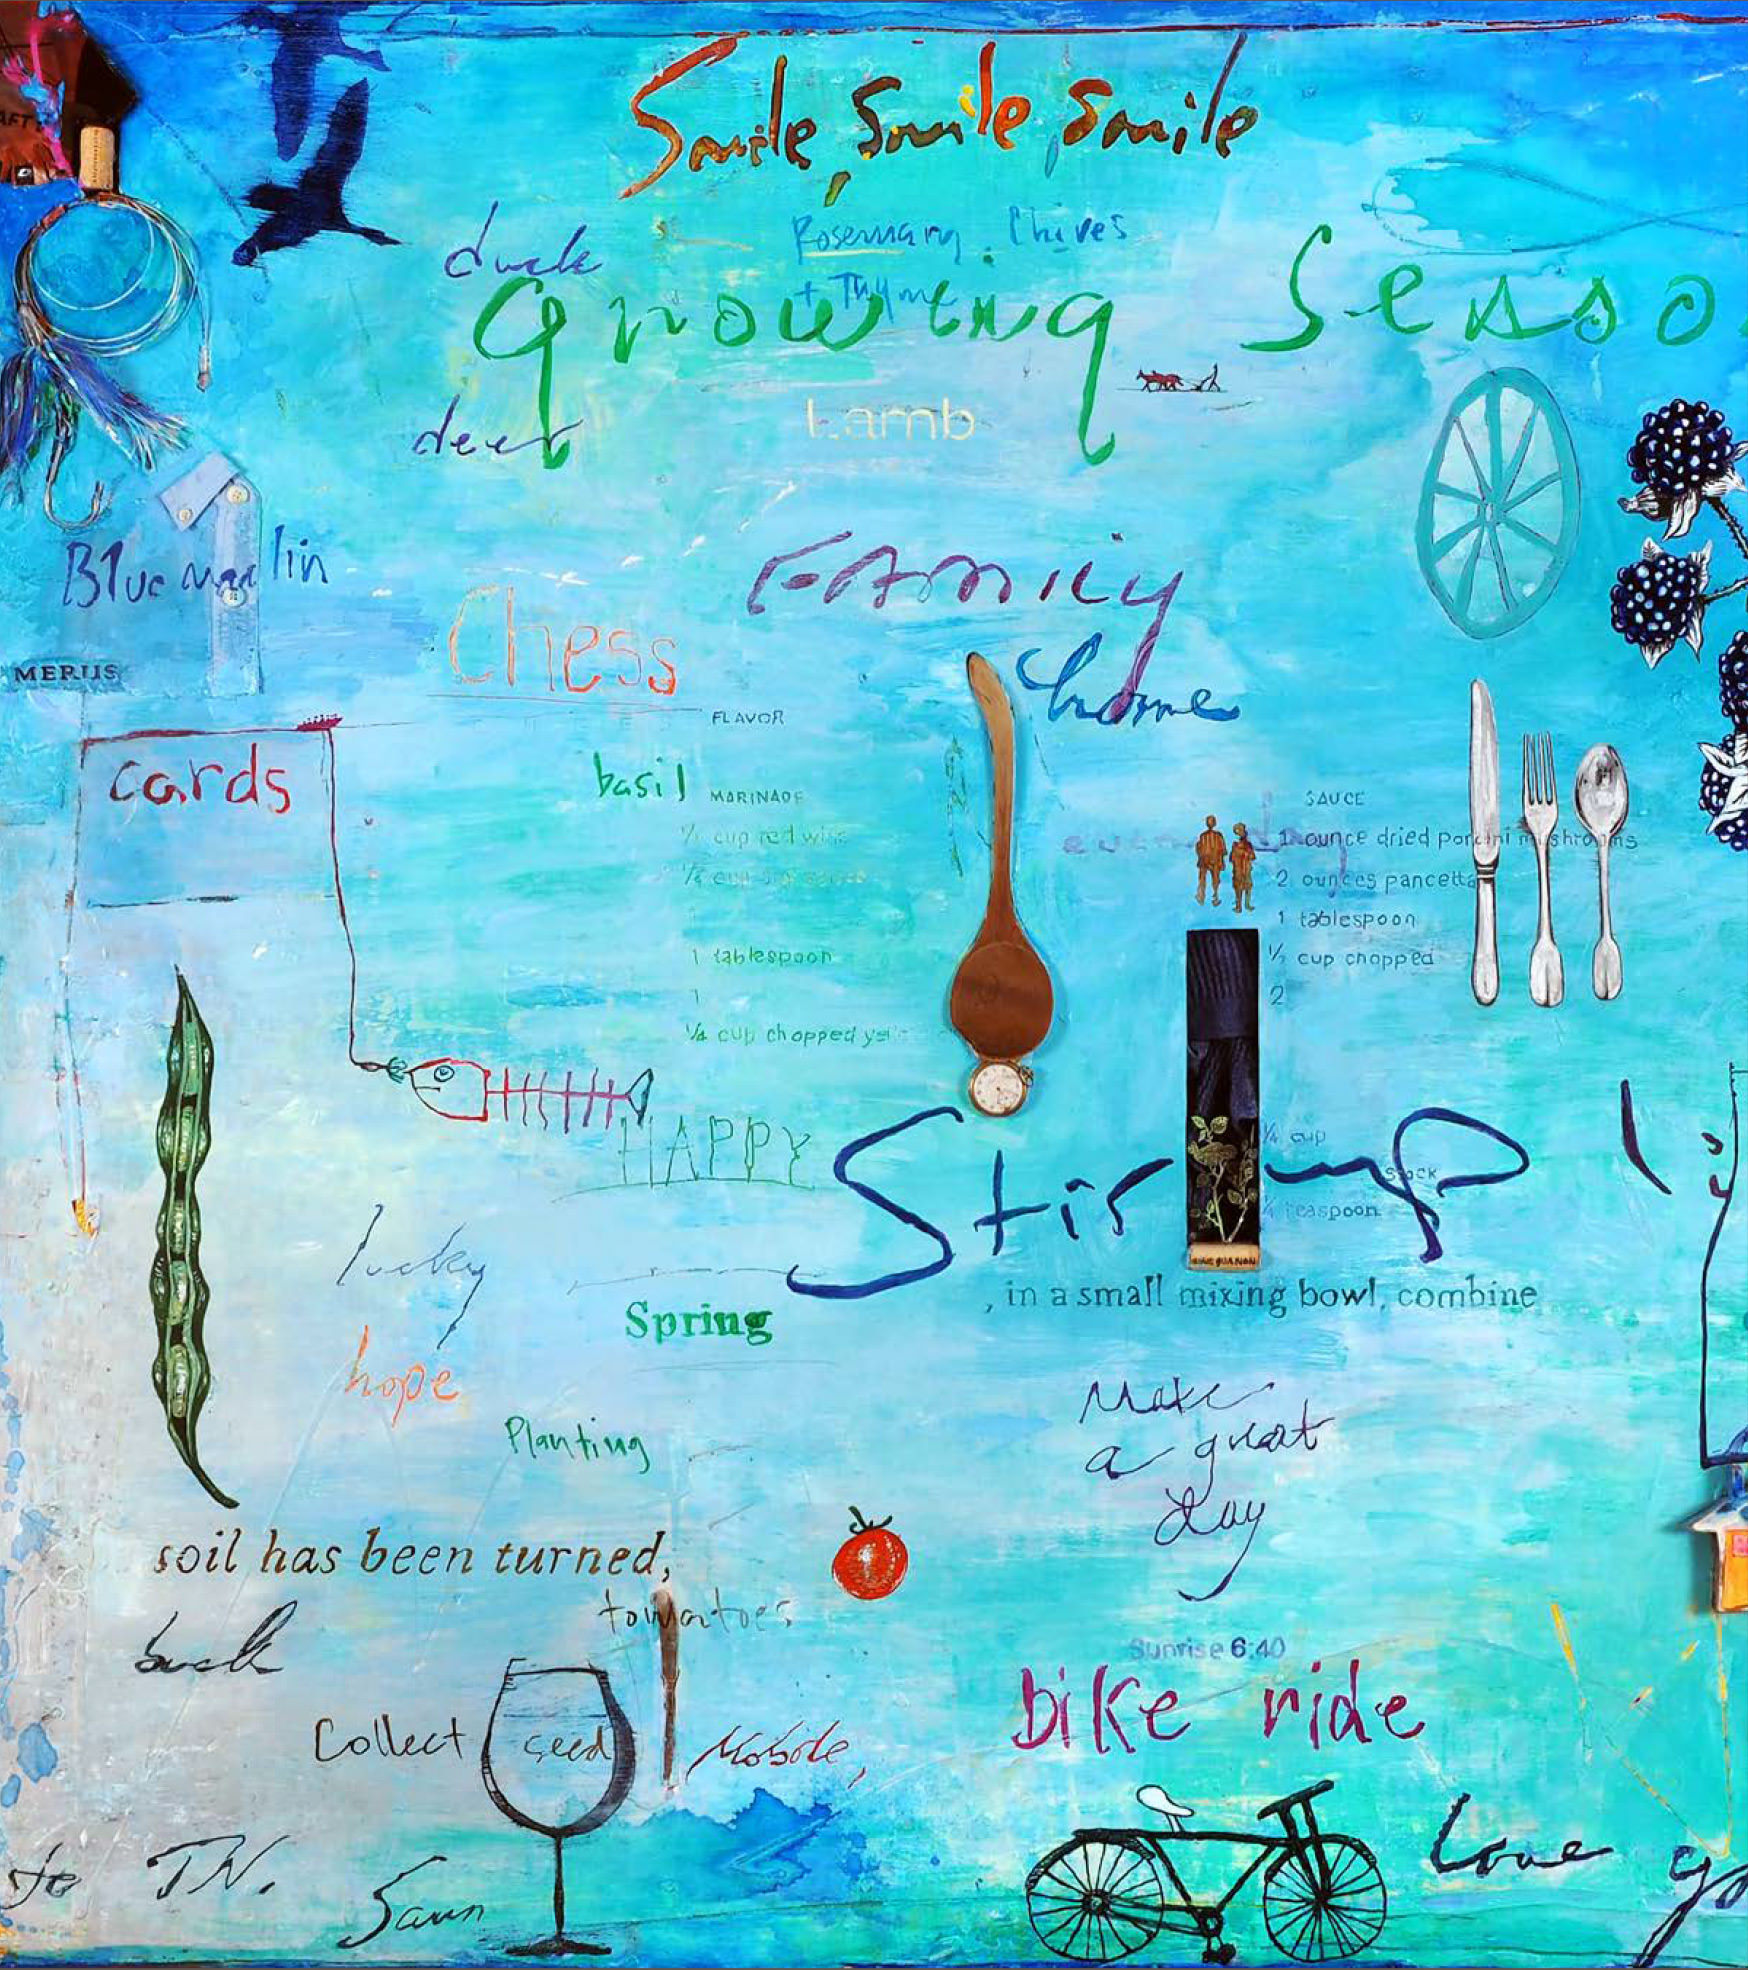 Smile, Smile, Smile
duck
Rosemary. Chives
+ Thyme
Growing Seaso
deer
Lamb
Blue marlin
FAmily
home
Chess
MERIIS
FLAVOR
cards
basil
MARINADE
SAUCE
1 ounce dried porcini mushrooms
2 ounces pancetta
1 tablespoon
½ cup chopped
2
1 tablespoon
1
¼ cup chopped
HAPPY
Stir up
¼ cup
stock
¼ teaspoon
SINE QUA NON
lucky
, in a small mixing bowl, combine
Spring
hope
Make
a great
day
Planting
soil has been turned,
tomatoes
Sunrise 6:40
bike ride
Collect seed
Love
to TN.